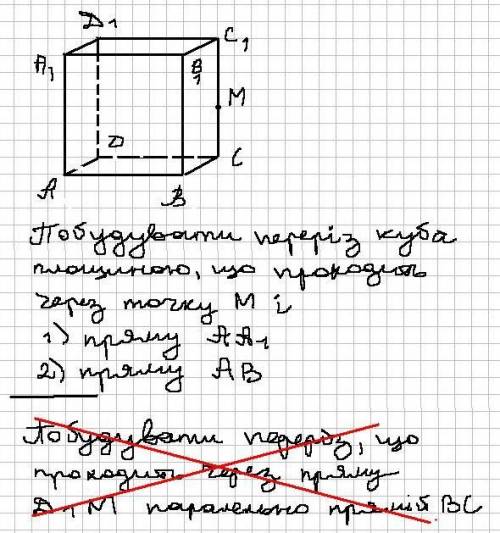 D1 C1
A1 B1
M
D C
A B
Побудувати переріз куба
площиною, що проходить
через точку М і
1) пряму AA1
2) пряму AB
Побудувати переріз, що
проходить через пряму
D1M паралельно прямій BC